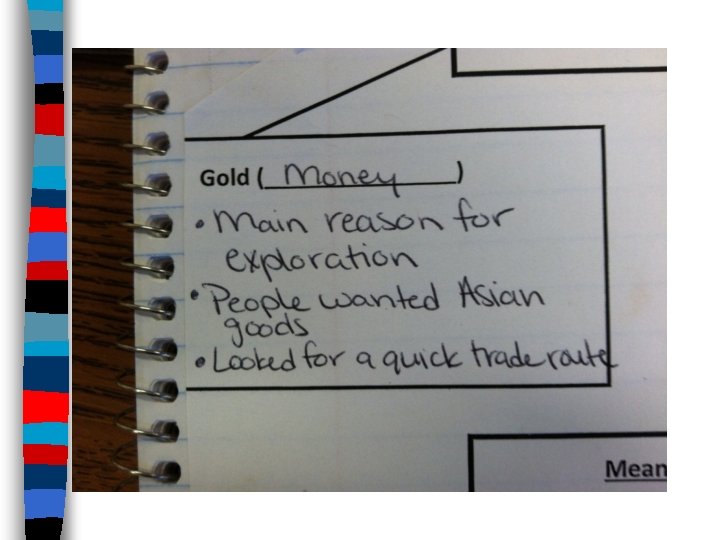 Gold (Money)
• Main reason for
exploration
• People wanted Asian
goods
• Looked for a quick trade route
Mean